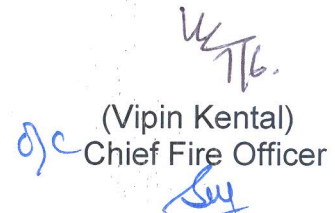 (Vipin Kental)
O/C Chief Fire Officer